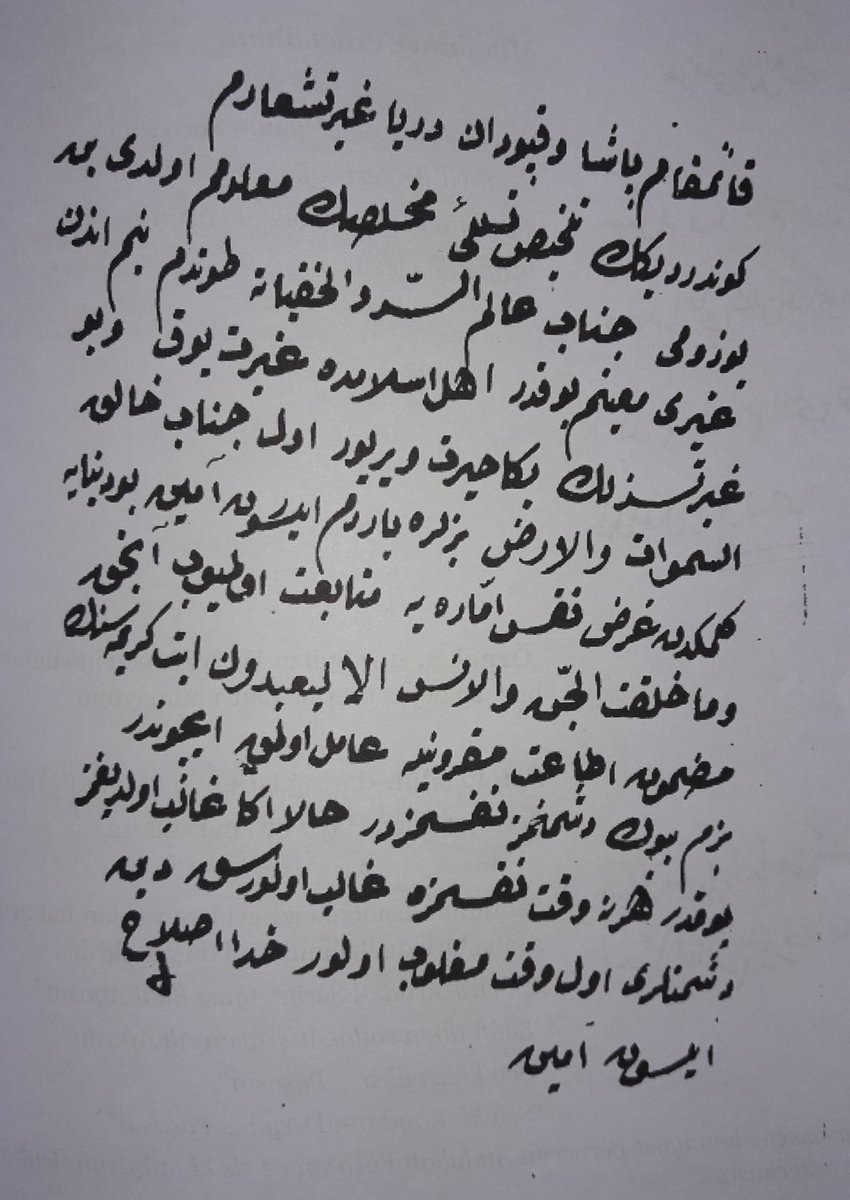 قائمقام پاشا و قپودان دریا غیرتشعارم
كوندردیكك تلخیص تسلئ مخلصك معلومم اولدی بن
یوزومی جناب عالم السّر والخفیاته طوتدم بنم اندن
غیری معینم یوقدر اهل اسلامده غیرت یوق وبو
غیرتسزلك بكا حیرت ویریور اول جناب خالق
السموات والارض بزلره یاردم ایدسون آمین بو دنیایه
كلمكدن غرض نفس امّاره یه متابعت اولمیوب آنجق
وما خلقت الجّن والانس الا لیعبدون ایت كریمه سنك
مضمون اطاعت مقرونیله عامل اولمق ایچوندر
بزم بیوك دشمنمز نفسمزدر حالا اكا غالب اولدیغمز
یوقدر هرنه وقت نفسمزه غالب اولورسق دین
دشمنلری اول وقت مغلوب اولور خدا اصلاح
ایلسون آمین